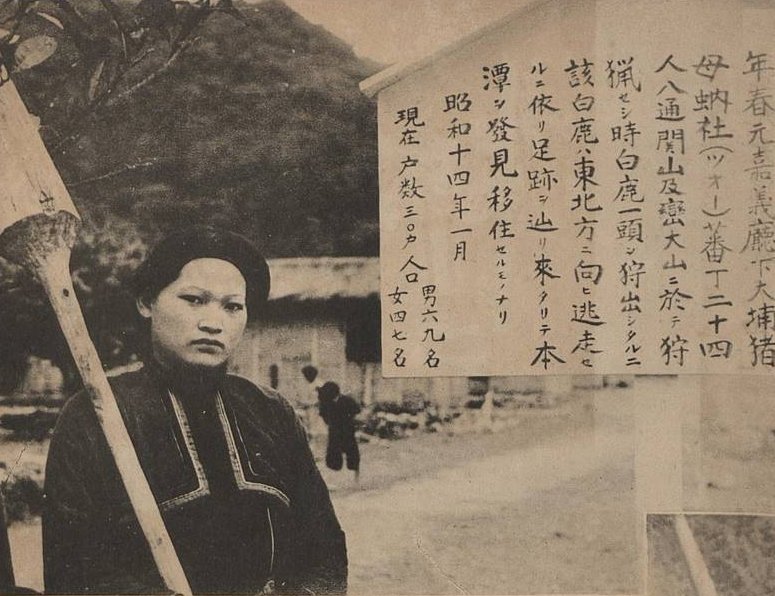 年春元嘉義廳下大埔猪
母蚋社(ツオー)蕃丁二十四
人八通関山及巒大山ニ於テ狩
猟セシ時白鹿一頭ヲ狩出シタルニ
該白鹿ハ東北方ニ向ヒ逃走セ
ルニ依リ足跡ヲ辿リ來タリテ本
潭ヲ發見移住セルモノナリ
昭和十四年一月
現在戸数三〇戸人口
男六九名
女四七名